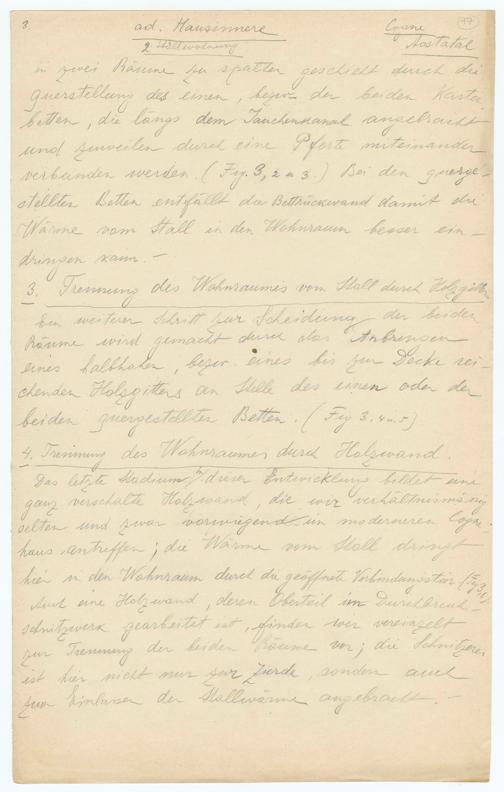 3 ad. Hausinnere Cogne 77
2 Stallwohnung Aostatal
in zwei Räume zu spalten geschieht durch die
Querstellung des einen, bezw. der beiden Kasten-
betten, die längs dem Jauchenkanal angebracht
und zuweilen durch eine Pforte miteinander
verbunden werden. (Fig. 3, 2 u 3.) Bei den querge-
stellten Betten entfällt die Bettrückwand damit die
Wärme vom Stall in den Wohnraum besser ein-
dringen kann. -
3. Trennung des Wohnraumes vom Stall durch Holzgitter
Ein weiterer Schritt zur Scheidung der beiden
Räume wird gemacht durch das Anbringen
eines halbhohen, bezw. eines bis zur Decke rei-
chenden Holzgitters an Stelle des einen oder der
beiden quergestellten Betten. (Fig 3. 4 u. 5)
4. Trennung des Wohnraumes durch Holzwand.
Das letzte Stadium in dieser Entwicklung bildet eine
ganz verschalte Holzwand, die wir verhältnismässig
selten und zwar vorwiegend im moderneren Cogne-
haus antreffen; die Wärme vom Stall dringt
hier in den Wohnraum durch die geöffnete Verbindungstür (Fig 3,6)
Auch eine Holzwand, deren Oberteil im Durchbruch-
schnitzwerk gearbeitet ist, finden wir vereinzelt
zur Trennung der beiden Räume vor; die Schnitzerei
ist hier nicht nur zur Zierde, sondern auch
zum Einlassen der Stallwärme angebracht. -